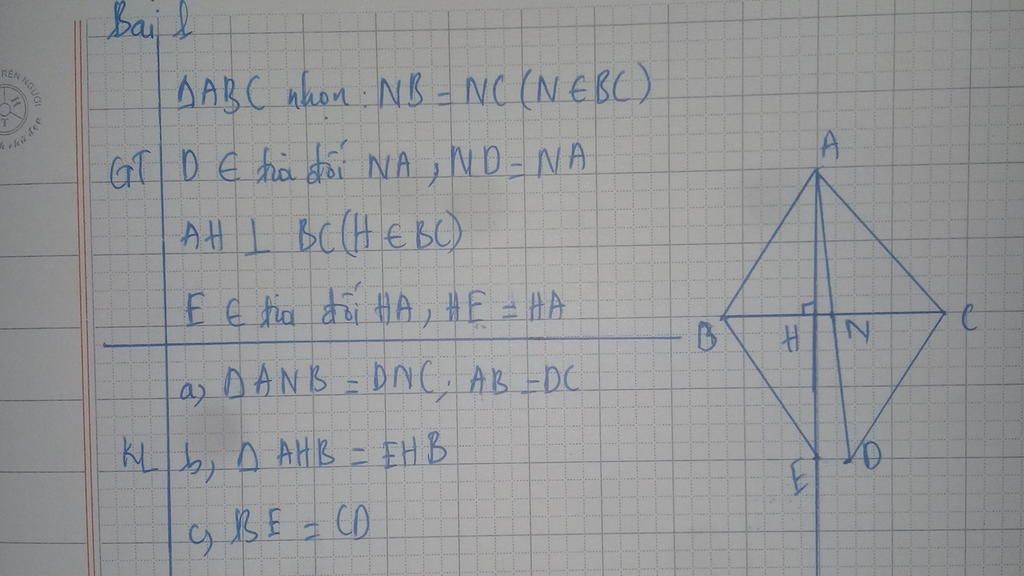 Bài 1
ΔABC nhọn: NB = NC (N ∈ BC)
GT D ∈ tia đối NA, ND = NA
AH ⊥ BC (H ∈ BC)
E ∈ tia đối HA, HE = HA
a, ΔANB = DNC; AB = DC
KL b, Δ AHB = EHB
c, BE = CD
A
B H N C
E D